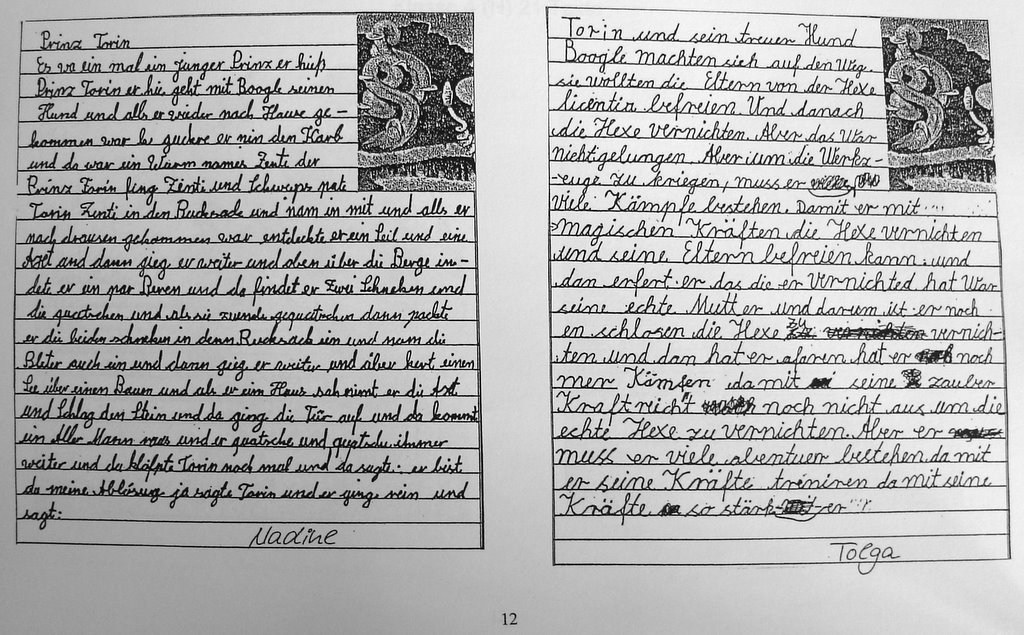 Prinz Torin
Es wa ein mal ein junger Prinz er hieß
Prinz Torin er hie geht mit Boogle seinen
Hund und alls er wieder nach Hause ge-
kommen war guckte er nin den Karb
und da war ein Wurm names Zenti der
Prinz Torin fing Zenti und Schweps
Torin Zenti in den Rucksack und nam in mit und alls er
nach drausen gekommen war entdeckte er ein Seil und eine
Axt and dann gieg er weiter und oben über die Berge in-
dete er ein par Benen und da findet er zwei Schneken und
die quatschen und als sie zuende gequatschen dann packte
er die beiden schneken in denn Rucksack ein und nam die
Bläter auch ein und dann gieg er weiter und über kert einen
See über einen Baum und als er eim Haus sah nimt er di Axt
und schlag den Stein und da ging die Tür auf und da kommt
ein Aller Mann raus und er quatsche und immer
weiter und da klöpfte Torin noch mal und da sagte: er bist
du meine Ablösung ja sagte Torin und er ginge rein und
sagt:
Nadine
Torin und sein treuer Hund
Boogle machten sich auf den Weg.
sie wollten die Eltern von der Hexe
licentia befreien. Und danach
die Hexe vernichten. Aber das War
nicht gelungen. Aber um die Werkz-
-euge zu kriegen, muss er
viele Kämpfe bestehen. Damit er mit
magischen Kräften die Hexe vernichten
und seine Eltern befreien kann. und
dan erfert er das die er vernichted hat War
seine echte Mutter und darum ist er noch
en schlosen die Hexe zu vernich-
ten und dan hat er afaren hat er noch
mer Kämfen da mit seine zauber
Kraft reicht noch nicht aus um die
echte Hexe zu vernichten. Aber er
muss er viele abentuer bestehen da mit
er seine Kräfte treniren da mit seine
Kräfte so stärk er
Tolga
12